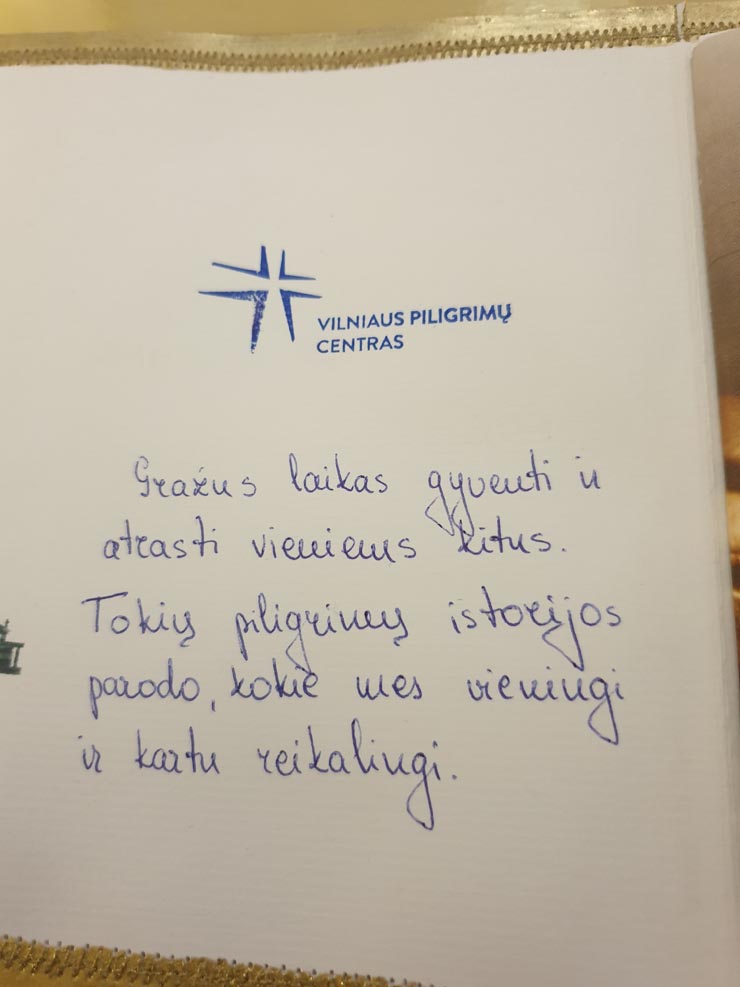 VILNIAUS PILIGRIMŲ
CENTRAS
Gražus laikas gyventi ir
atrasti vieniems kitus.
Tokių piligrimų istorijos
parodo, kokie mes vieningi
ir kartu reikalingi.